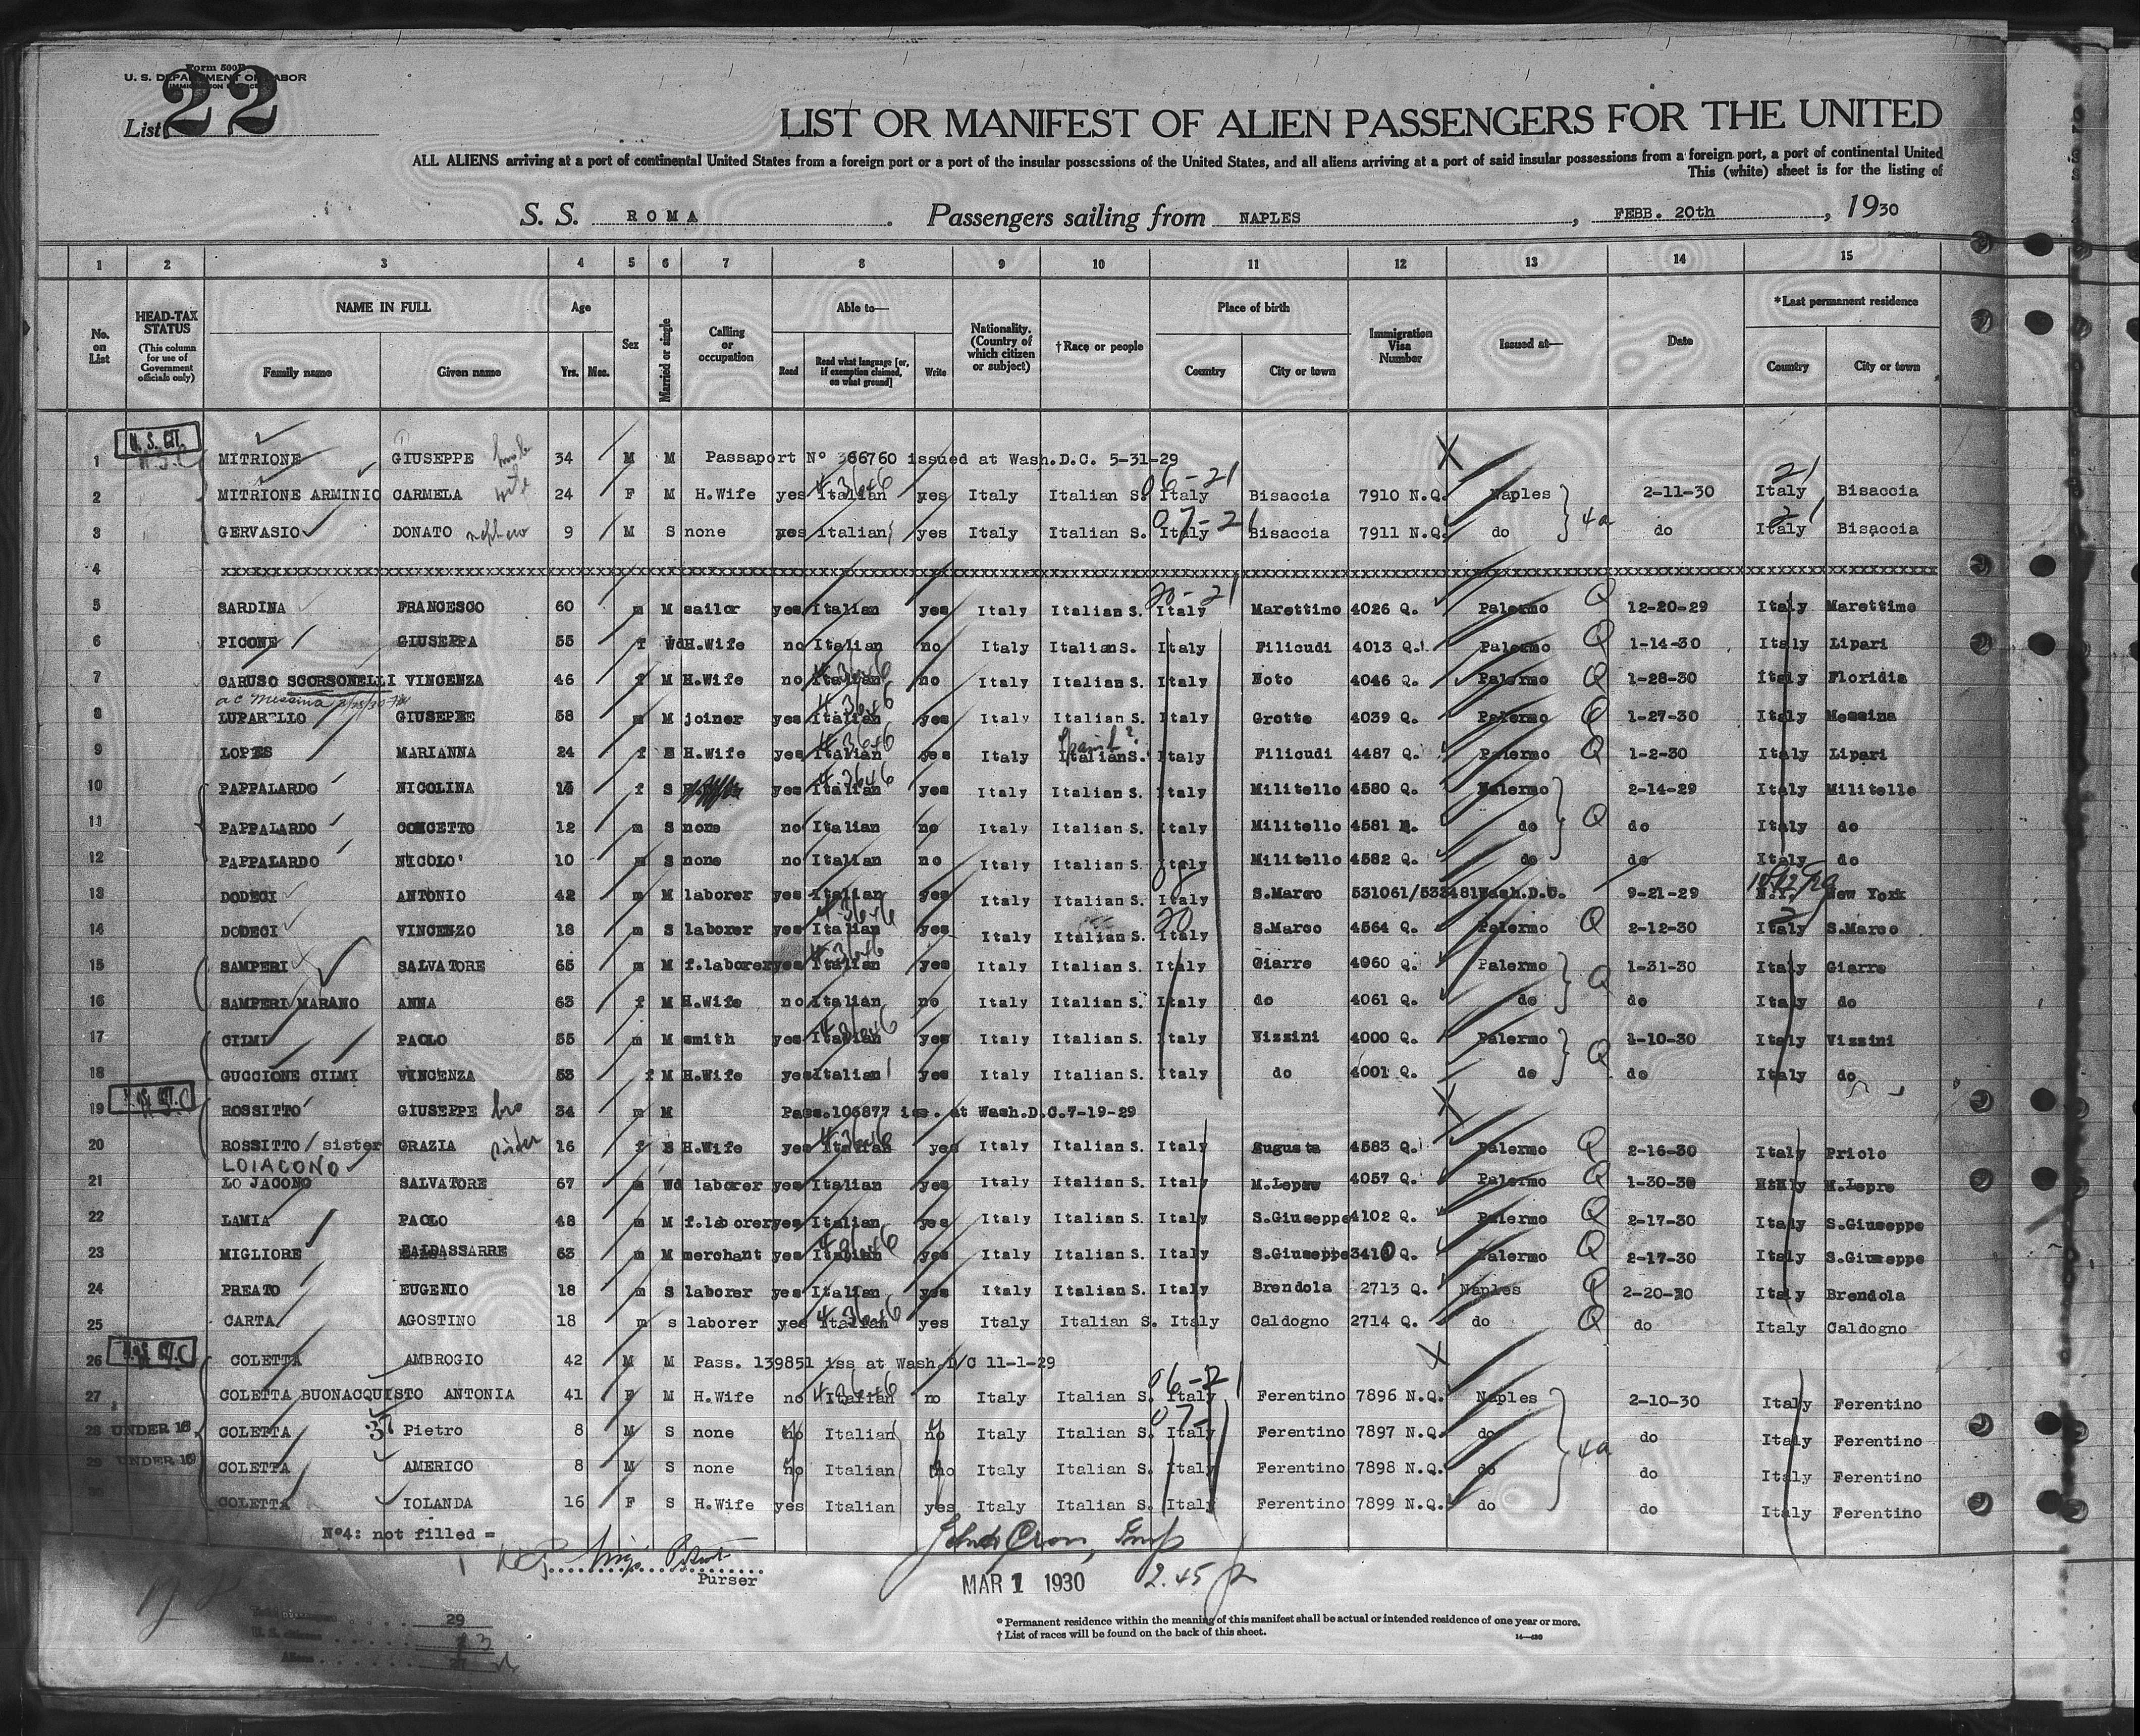 Form 500B
U. S. DEPARTMENT OF LABOR
List 22
LIST OR MANIFEST OF ALIEN PASSENGERS FOR THE UNITED
ALL ALIENS arriving at a port of continental United States from a foreign port or a port of the insular possessions of the United States, and all aliens arriving at a port of said insular possessions from a foreign port, a port of continental United
This (white) sheet is for the listing of
S. S. ROMA. Passengers sailing from NAPLES, FEBB. 20th, 1930
1 2 3 4 5 6 7 8 9 10 11 12 13 14 15
No. on List
HEAD-TAX STATUS (This column for use of Government officials only)
NAME IN FULL Family name Given name
Age Yrs. Mos.
Sex
Married or single
Calling or occupation
Able to— Read Read what language [or, if exemption claimed, on what ground] Write
Nationality. (Country of which citizen or subject)
†Race or people
Place of birth Country City or town
Immigration Visa Number
Issued at—
Date
*Last permanent residence Country City or town
U. S. CIT.
1 MITRIONE GIUSEPPE 34 M M Passaport Nº 366760 issued at Wash.D.C. 5-31-29 X
06-21 21
2 MITRIONE ARMINIO CARMELA wife 24 F M H.Wife yes Italian yes Italy Italian S. Italy Bisaccia 7910 N.Q. Naples 2-11-30 Italy Bisaccia
3 GERVASIO DONATO nephew 9 M S none yes italian yes Italy Italian S. Italy Bisaccia 7911 N.Q. do 4a do Italy Bisaccia
4 xxxxxxxxxxxxxxxxxxxxxxxxxxxxxxxxxxxxxxxxxxxxxxxxxxxxxxxxxxxxxxxxxxxx
20-21
5 SARDINA FRANCESCO 60 m M sailor yes Italian yes Italy Italian S. Italy Marettimo 4026 Q. Palermo Q 12-20-29 Italy Marettimo
6 PICONE GIUSEPPA 55 f Wd H.Wife no Italian no Italy Italian S. Italy Filicudi 4013 Q. Palermo Q 1-14-30 Italy Lipari
7 CARUSO SCORSONELLI VINCENZA 46 f M H.Wife no Italian no Italy Italian S. Italy Noto 4046 Q. Palermo Q 1-28-30 Italy Floridia
8 LUPARELLO GIUSEPPE 58 m M joiner yes Italian yes Italy Italian S. Italy Grotte 4039 Q. Palermo Q 1-27-30 Italy Messina
9 LOPES MARIANNA 24 f S H.Wife yes Italian yes Italy Italian S. Italy Filicudi 4487 Q. Palermo Q 1-2-30 Italy Lipari
10 PAPPALARDO NICOLINA f S yes Italian yes Italy Italian S. Italy Militello 4580 Q. Palermo 2-14-29 Italy Militello
11 PAPPALARDO CONCETTO 12 m S none no Italian no Italy Italian S. Italy Militello 4581 do Q do Italy do
12 PAPPALARDO NICOLO' 10 m S none no Italian no Italy Italian S. Italy Militello 4582 Q. do do Italy do
13 DODECI ANTONIO 42 m M laborer yes Italian yes Italy Italian S. Italy S.Marco 531061/533481 Wash.D.C. 9-21-29 N.Y. New York
14 DODECI VINCENZO 18 m S laborer yes Italian yes Italy Italian S. Italy S.Marco 4564 Q. Palermo Q 2-12-30 Italy S.Marco
15 SAMPERI SALVATORE 65 m M f.laborer yes Italian yes Italy Italian S. Italy Giarre 4060 Q. Palermo 1-31-30 Italy Giarre
16 SAMPERI MARANO ANNA 63 f M H.Wife no Italian no Italy Italian S. Italy do 4061 Q. do Q do Italy do
17 CILMI PAOLO 55 m M smith yes Italian yes Italy Italian S. Italy Vizzini 4000 Q. Palermo 1-10-30 Italy Vizzini
18 GUCCIONE CILMI VINCENZA 53 f M H.Wife yes Italian yes Italy Italian S. Italy do 4001 Q. do Q do Italy do
19 ROSSITTO GIUSEPPE bro 34 m M Pass.106877 iss. at Wash.D.C.7-19-29 X
20 ROSSITTO/ sister GRAZIA sister 16 f S H.Wife yes Italian yes Italy Italian S. Italy Augusta 4583 Q. Palermo Q 2-16-30 Italy Priolo
LOIACONO
21 LO JACONO SALVATORE 67 m Wd laborer yes Italian yes Italy Italian S. Italy M.Lepre 4057 Q. Palermo Q 1-30-30 Italy M.Lepre
22 LAMIA PAOLO 48 m M f.laborer yes Italian yes Italy Italian S. Italy S.Giuseppe 4102 Q. Palermo Q 2-17-30 Italy S.Giuseppe
23 MIGLIORE BALDASSARRE 63 m M merchant yes Italian yes Italy Italian S. Italy S.Giuseppe 3410 Q. Palermo Q 2-17-30 Italy S.Giuseppe
24 PREATO EUGENIO 18 m S laborer yes Italian yes Italy Italian S. Italy Brendola 2713 Q. Naples Q 2-20-30 Italy Brendola
25 CARTA AGOSTINO 18 m s laborer yes Italian yes Italy Italian S. Italy Caldogno 2714 Q. do Q do Italy Caldogno
26 COLETTA AMBROGIO 42 M M Pass. 139851 iss at Wash.D/C 11-1-29 X
27 COLETTA BUONACQUISTO ANTONIA 41 F M H.Wife no Italian no Italy Italian S. Italy Ferentino 7896 N.Q. Naples 2-10-30 Italy Ferentino
28 UNDER 16 COLETTA Pietro 8 M S none no Italian no Italy Italian S. Italy Ferentino 7897 N.Q. do do Italy Ferentino
29 UNDER 16 COLETTA AMERICO 8 M S none no Italian no Italy Italian S. Italy Ferentino 7898 N.Q. do 4a do Italy Ferentino
30 COLETTA IOLANDA 16 F S H.Wife yes Italian yes Italy Italian S. Italy Ferentino 7899 N.Q. do do Italy Ferentino
Nº4: not filled =
Purser
MAR 1 1930 2.45 p
29
U. S. citizens
Aliens
* Permanent residence within the meaning of this manifest shall be actual or intended residence of one year or more.
† List of races will be found on the back of this sheet.